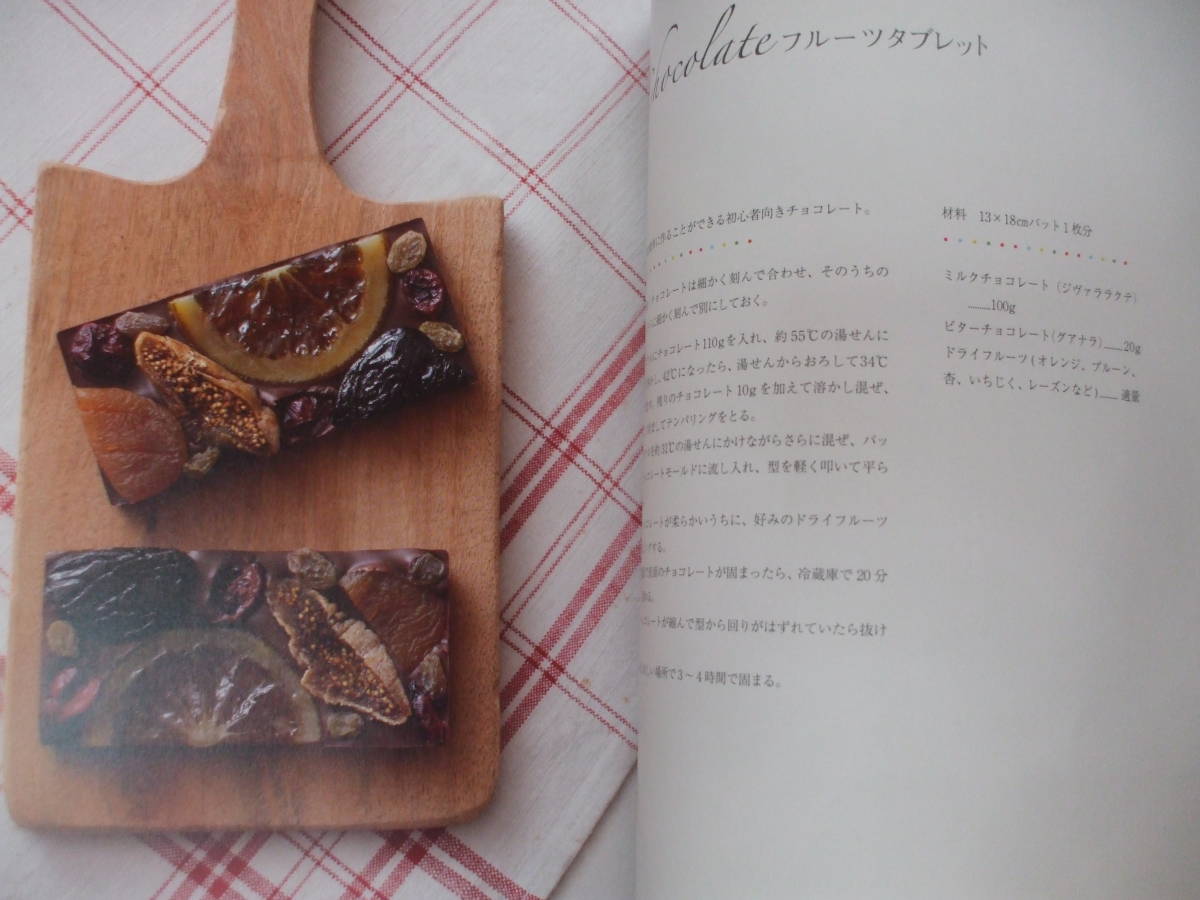 Chocolateフルーツタブレット
に作ることができる初心者向きチョコレート。
チョコレートは細かく刻んで合わせ、そのうちの
に細かく刻んで別にしておく。
にチョコレート110gを入れ、約55℃の湯せんに
し、42℃になったら、湯せんからおろして34℃
、残りのチョコレート10gを加えて溶かし混ぜ、
してテンパリングをとる。
31℃の湯せんにかけながらさらに混ぜ、バッ
レートモールドに流し入れ、型を軽く叩いて平ら
レートが柔らかいうちに、好みのドライフルーツ
する。
のチョコレートが固まったら、冷蔵庫で20分
る。
レートが縮んで型から回りがはずれていたら抜け
しい場所で3〜4時間で固まる。
材料　13×18㎝バット1枚分
ミルクチョコレート（ジヴァララクテ）
……100g
ビターチョコレート(グアナラ)……20g
ドライフルーツ(オレンジ、プルーン、
杏、いちじく、レーズンなど)……適量